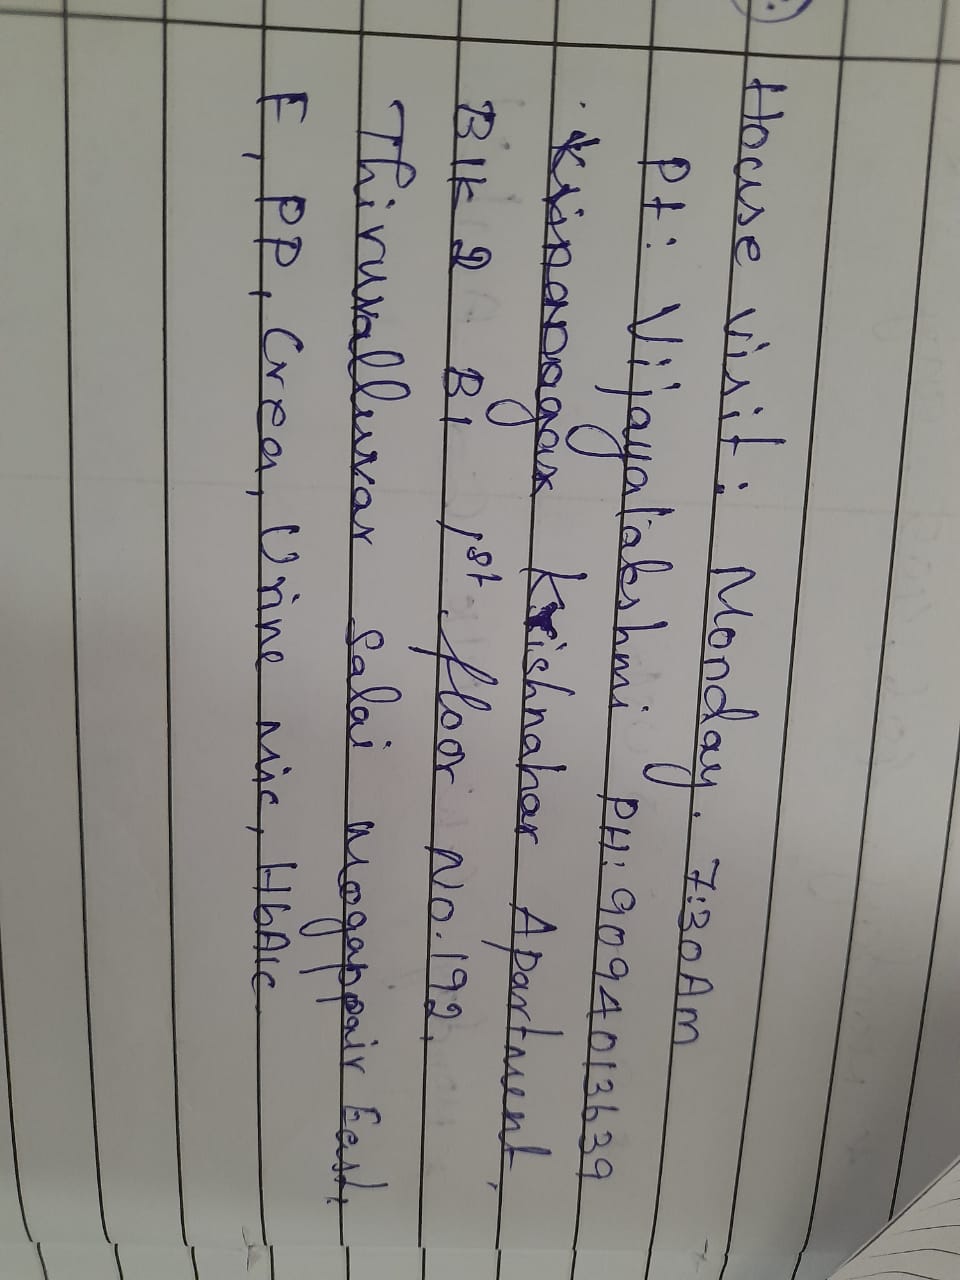 House visit: Monday. 7:30AM
Pt: Vijayalakshmi PH: 9094013639
Krishnahar Apartment,
Blk 2 B1 1st floor No. 192,
Thiruvalluvar Salai Mogappair East.
F, PP, Crea, Urine Mic, HbA1c